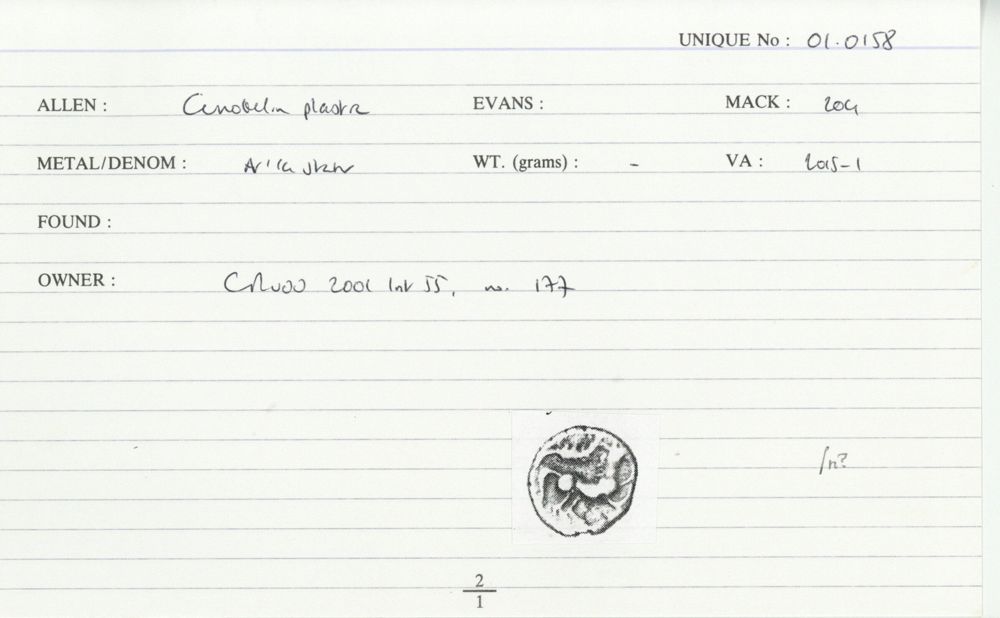 UNIQUE No : 01.0158
ALLEN : Cunobelin plastic EVANS : MACK : 204
METAL/DENOM : WT. (grams) : - VA : 2015-1
FOUND :
OWNER : CRudd 2001 list 55, no. 177
2
1